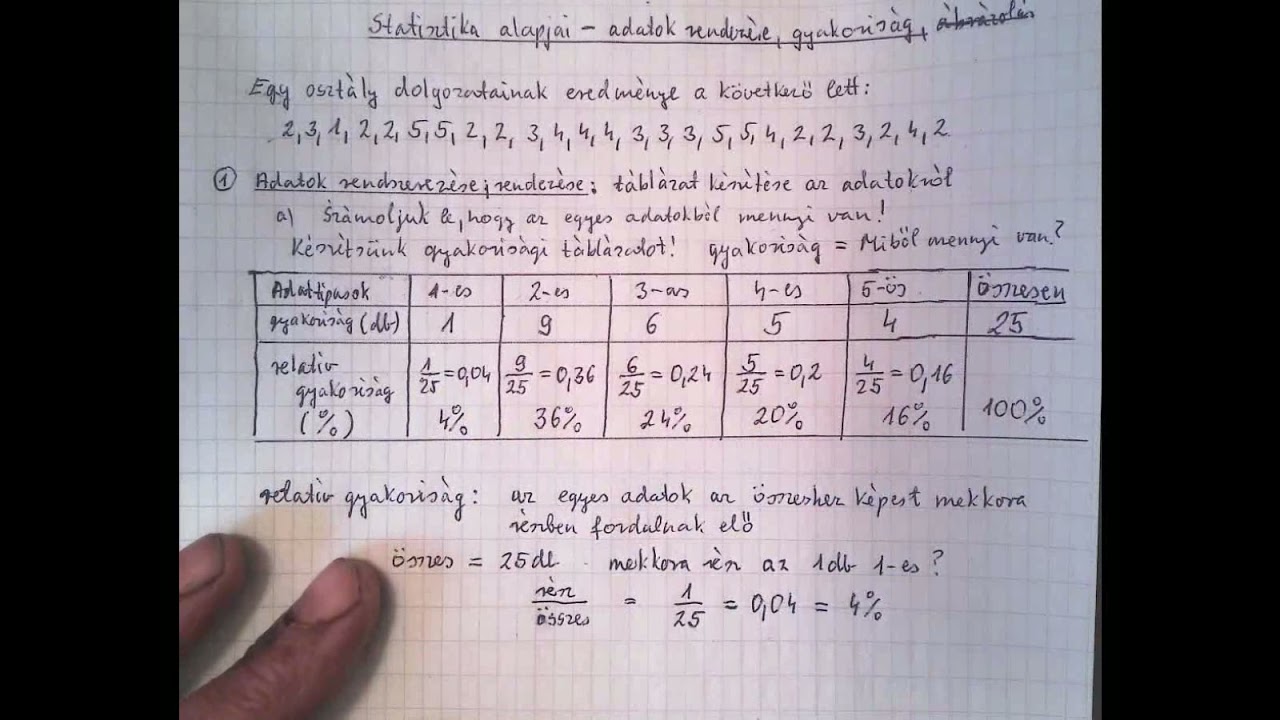 Statisztika alapjai – adatok rendezése, gyakoriság, ábrázolás
Egy osztály dolgozatainak eredménye a következő lett:
2, 3, 1, 2, 2, 5, 5, 2, 2, 3, 4, 4, 4, 3, 3, 3, 5, 5, 4, 2, 2, 3, 2, 4, 2
① Adatok rendszerezése, rendezése; táblázat készítése az adatokról
a) Számoljuk le, hogy az egyes adatokból mennyi van!
Készítsünk gyakorisági táblázadot! gyakoriság = Miből mennyi van?
Adattípusok 1-es 2-es 3-as 4-es 5-ös összesen
gyakoriság (db) 1 9 6 5 4 25
relatív gyakoriság (%) 1/25 = 0,04 9/25 = 0,36 6/25 = 0,24 5/25 = 0,2 4/25 = 0,16
4% 36% 24% 20% 16% 100%
relatív gyakoriság: az egyes adatok az összeshez képest mekkora
részben fordulnak elő
összes = 25 db mekkora rész az 1 db 1-es?
rész/összes = 1/25 = 0,04 = 4%